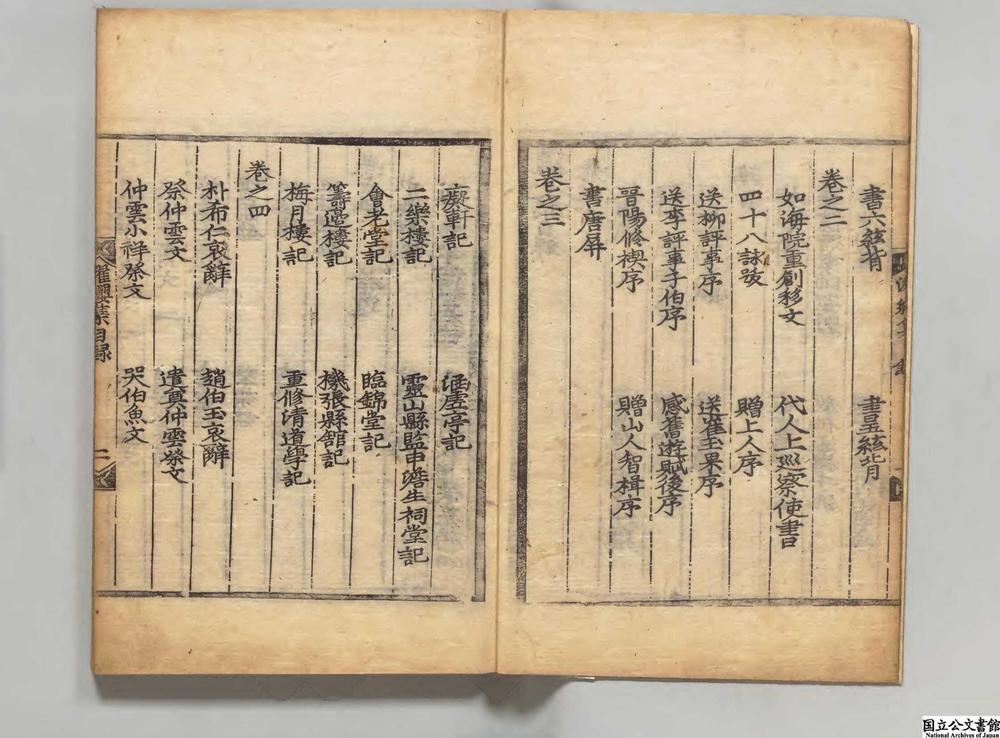 書六絃背 書皇統背
卷之二
如海院重創移文 代人上巡察使書
四十八詠跋 贈上人序
送柳評事序 送崔玉果序
送李評事子伯序 感舊遊賦後序
晉陽修禊序 贈山人智楫序
書唐屏
卷之三
癡軒記 涵虛亭記
二樂樓記 靈山縣監申澹生祠堂記
會老堂記 臨錦堂記
籌邊樓記 機張縣館記
梅月樓記 重修清道學記
卷之四
朴希仁哀辭 趙伯玉哀辭
祭仲雲文 遣奠仲雲祭文
仲雲小祥祭文 哭伯魚文
濯纓集目録 二
国立公文書館
National Archives of Japan